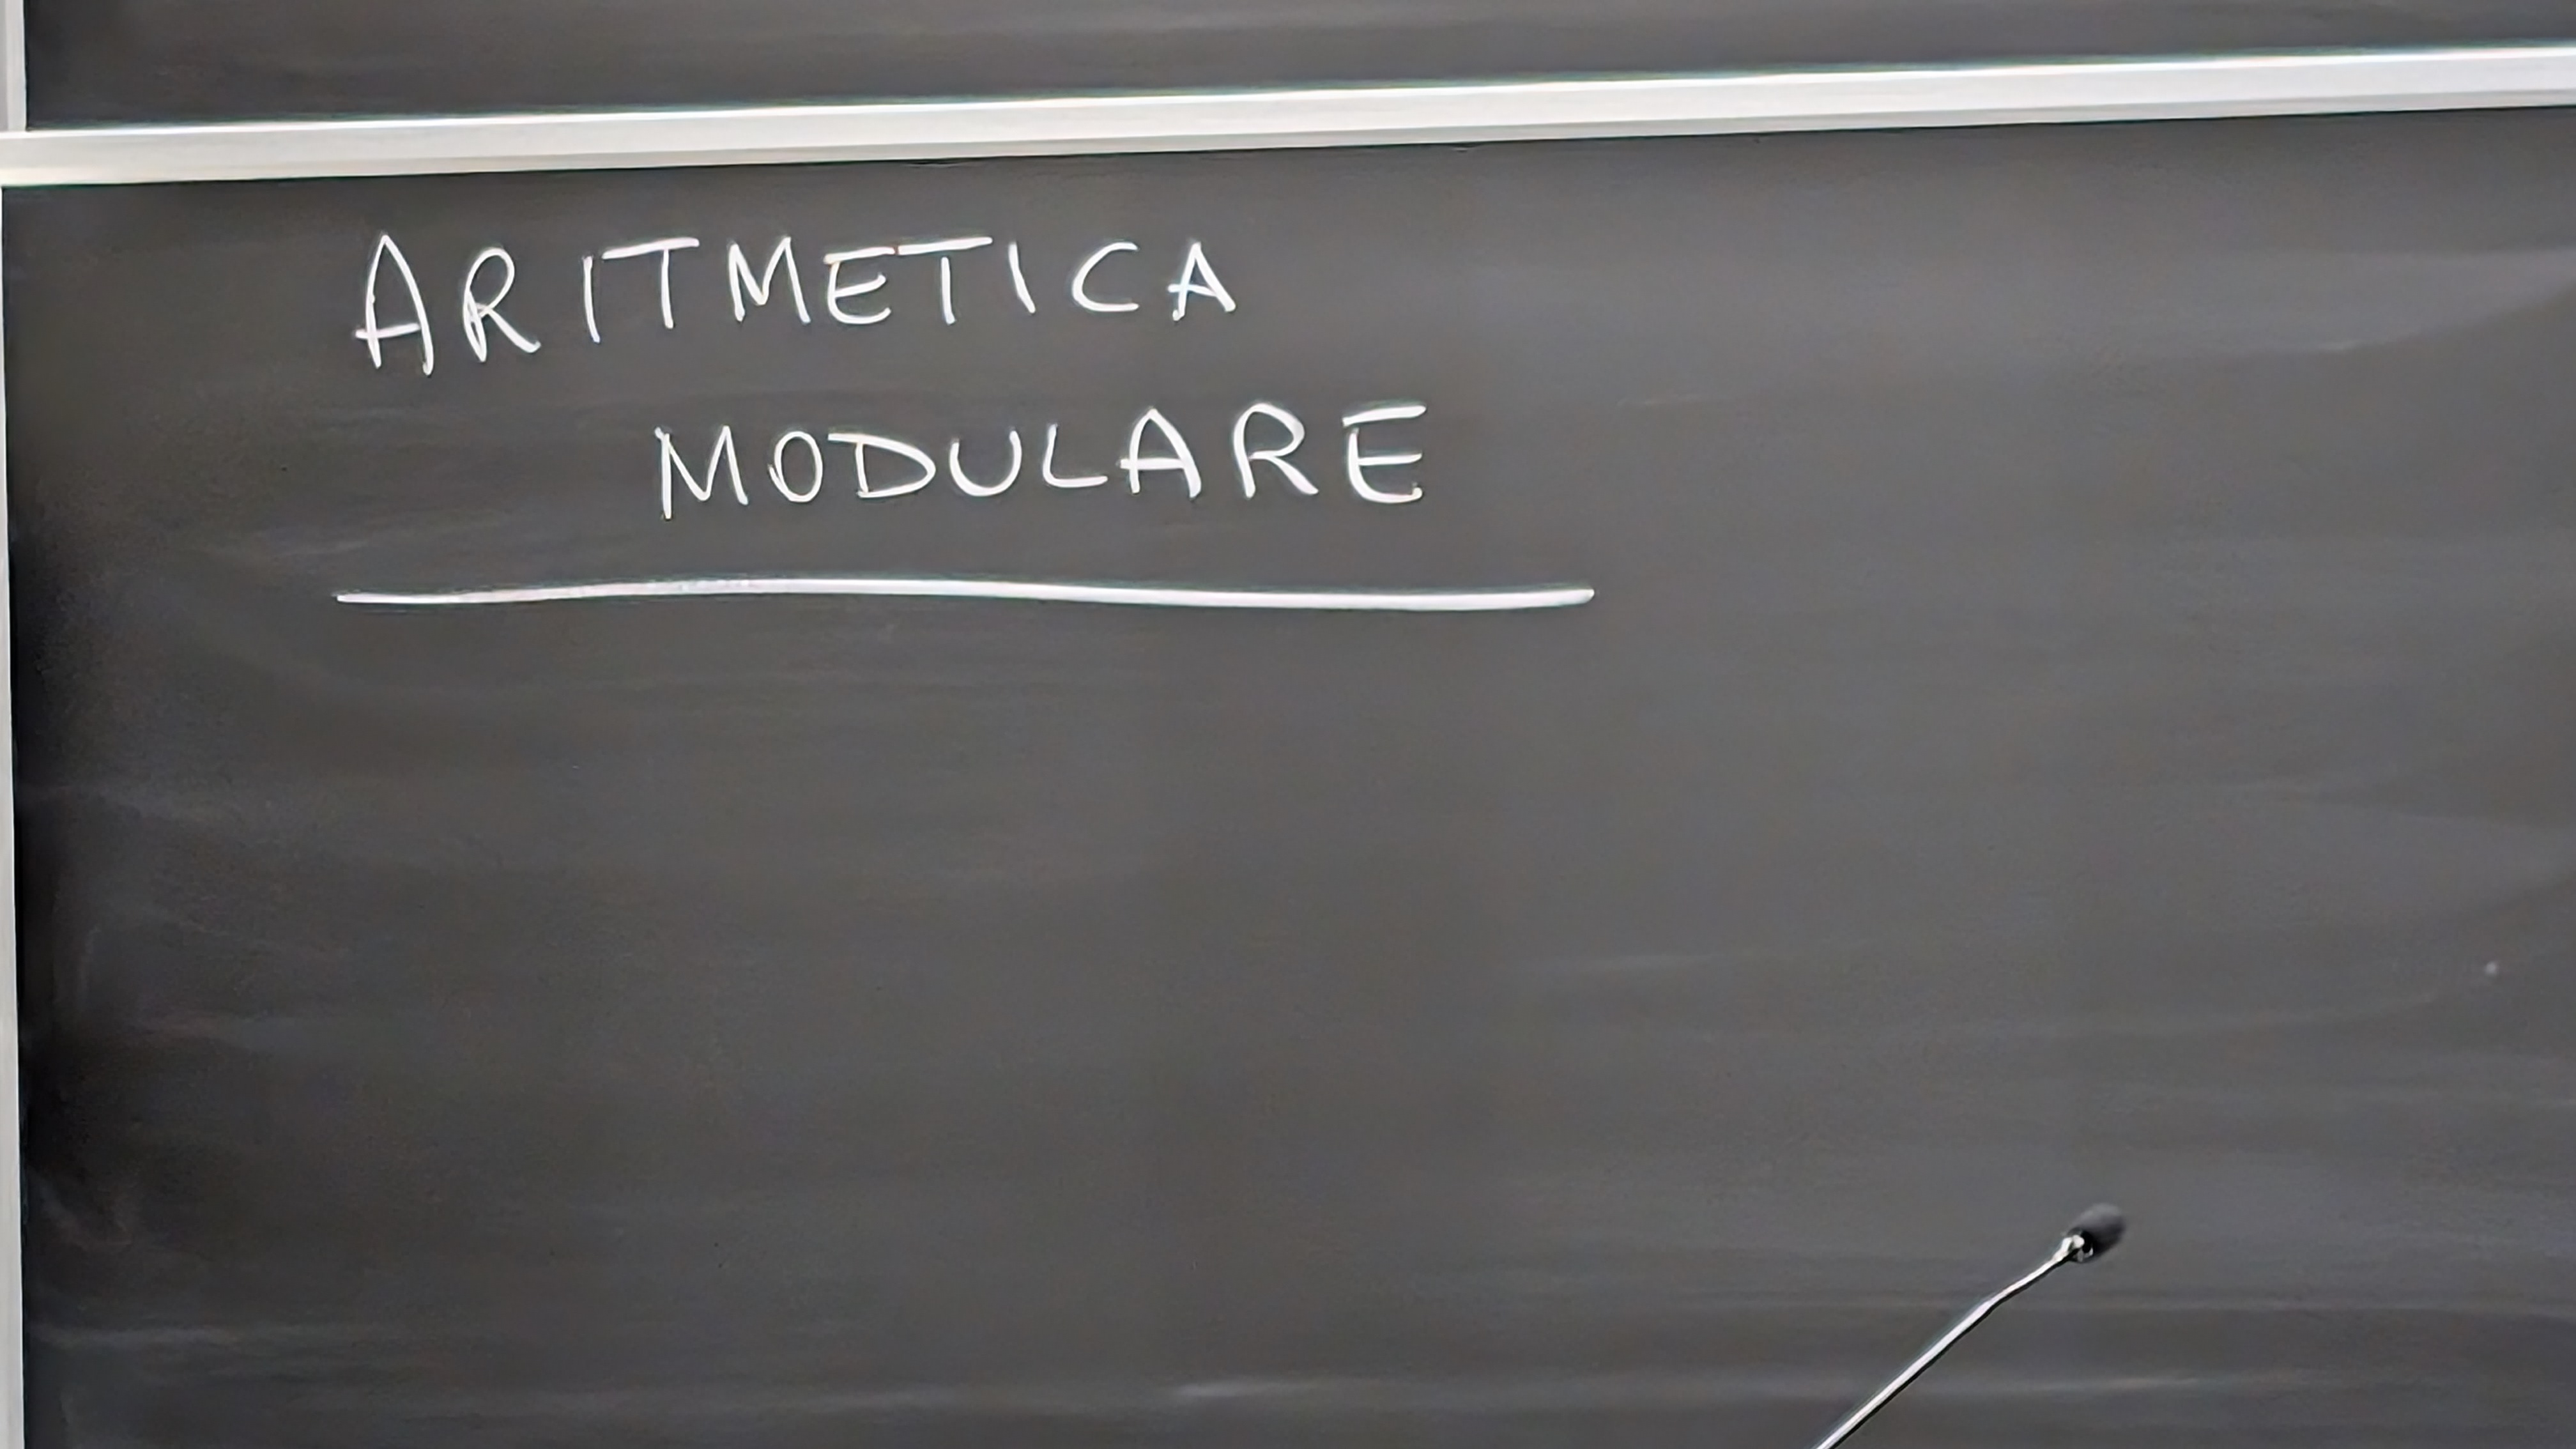 ARITMETICA
MODULARE